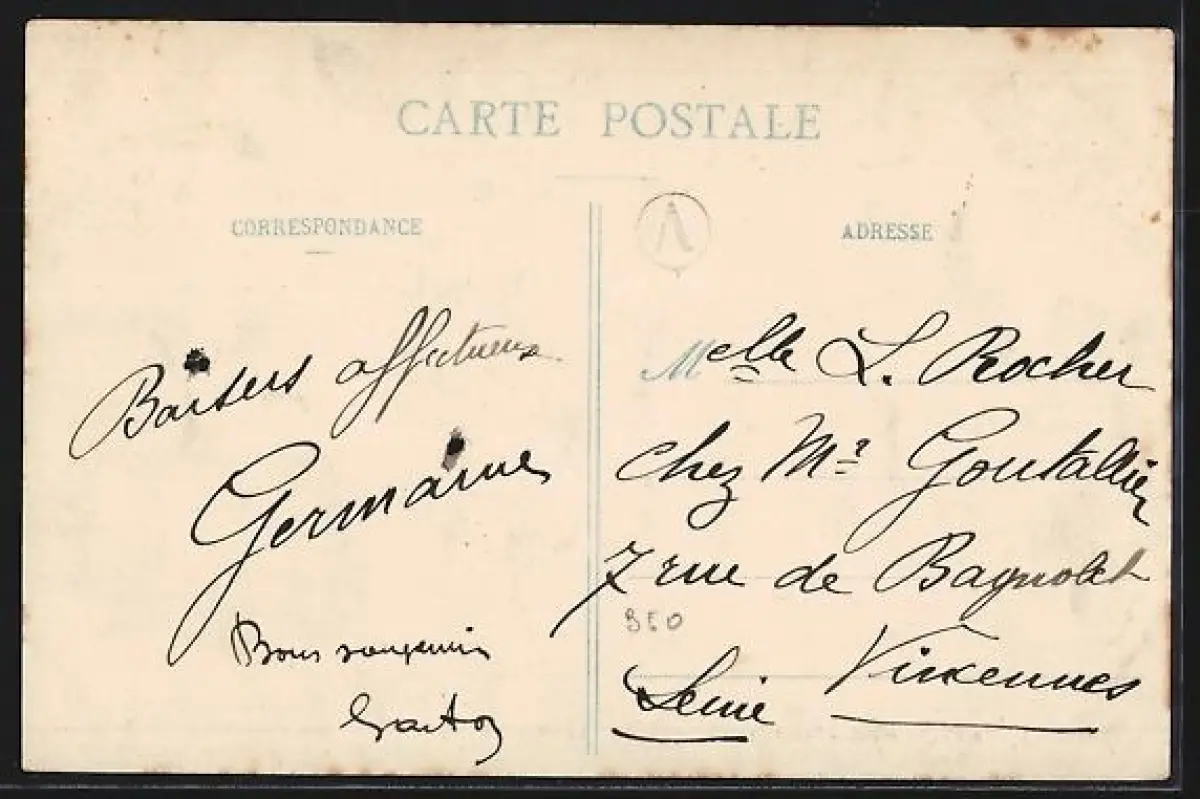 CARTE POSTALE
CORRESPONDANCE
ADRESSE
A
Baisers affectueux
Germaine
Bons
Gaston
Melle L. Rocher
chez Mr
7 rue de Bagnolet
350
Vincennes
Seine